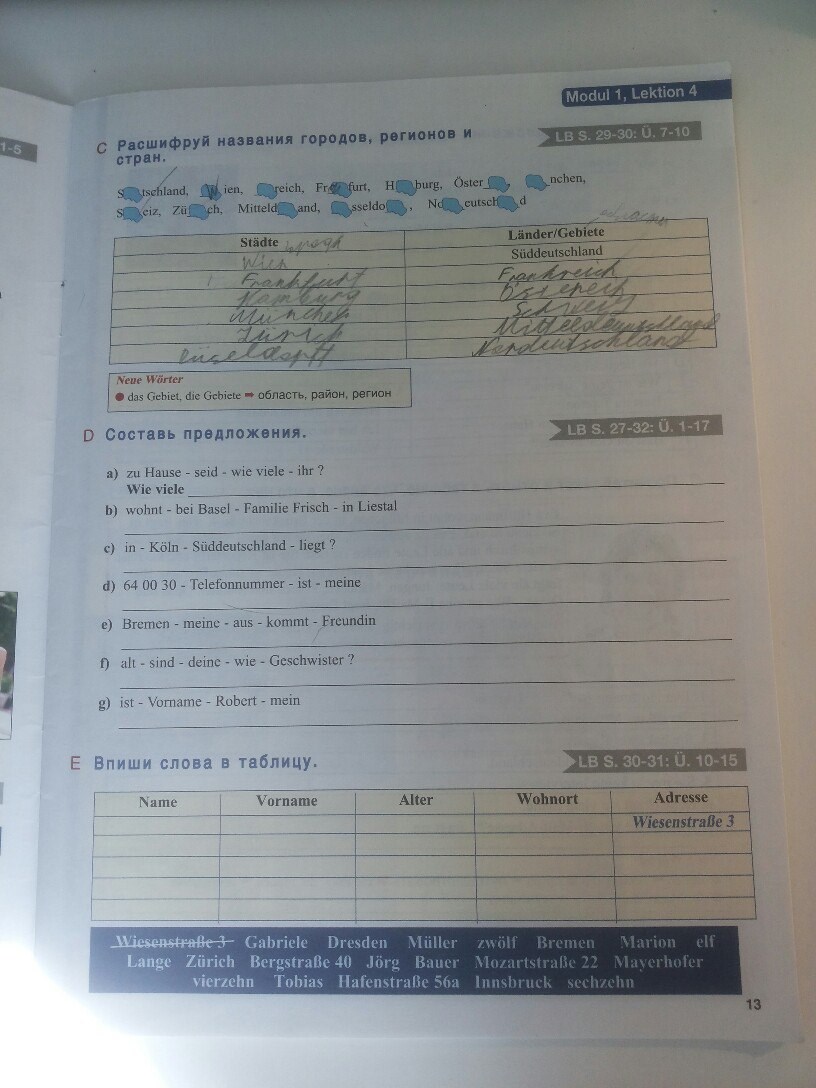 Modul 1, Lektion 4
1-5
C Расшифруй названия городов, регионов и
стран.
LB S. 29-30: Ü. 7-10
S tschland, ien, reich, Fr furt, H burg, Öster , nchen,
S eiz, Zü ch, Mitteld and, sseldo , No eutsch d
Städte Länder/Gebiete
Süddeutschland
Wien
Frankfurt Frankreich
Hamburg
München
Zürich Mitteldeutschland
Neue Wörter
● das Gebiet, die Gebiete ➡ область, район, регион
D Составь предложения.
LB S. 27-32: Ü. 1-17
a) zu Hause - seid - wie viele - ihr ?
Wie viele
b) wohnt - bei Basel - Familie Frisch - in Liestal
c) in - Köln - Süddeutschland - liegt ?
d) 64 00 30 - Telefonnummer - ist - meine
e) Bremen - meine - aus - kommt - Freundin
f) alt - sind - deine - wie - Geschwister ?
g) ist - Vorname - Robert - mein
E Впиши слова в таблицу.
LB S. 30-31: Ü. 10-15
Name Vorname Alter Wohnort Adresse
Wiesenstraße 3
Wiesenstraße 3 Gabriele Dresden Müller zwölf Bremen Marion elf
Lange Zürich Bergstraße 40 Jörg Bauer Mozartstraße 22 Mayerhofer
vierzehn Tobias Hafenstraße 56a Innsbruck sechzehn
13